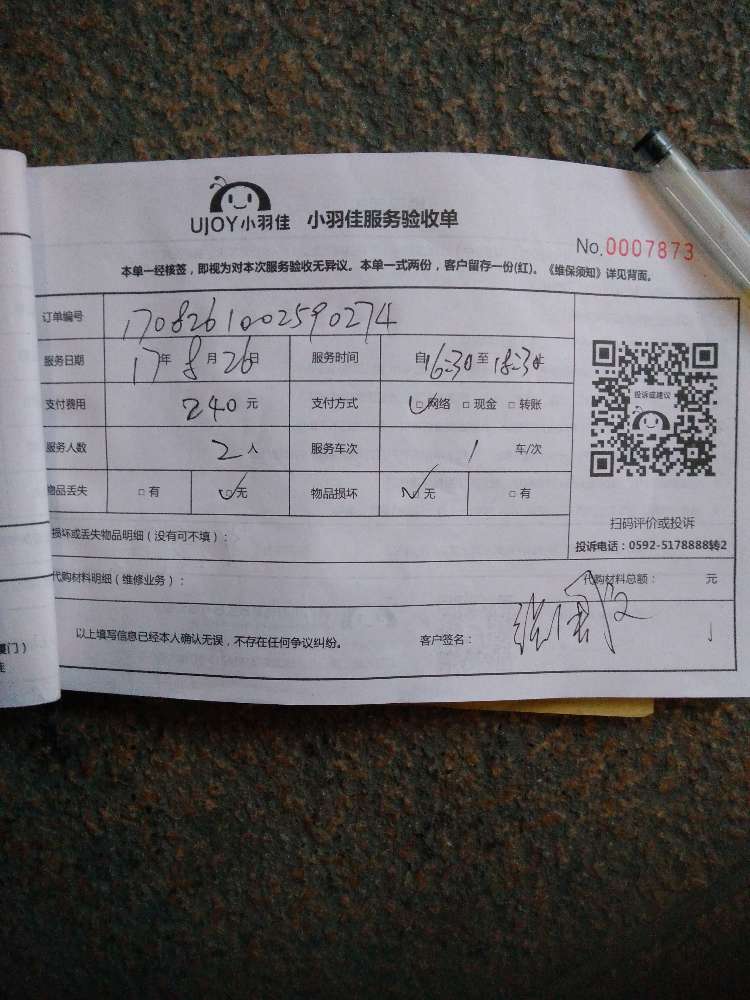 UJOY小羽佳 小羽佳服务验收单
No.0007873
本单一经核签，即视为对本次服务验收无异议。本单一式两份，客户留存一份(红)。《维保须知》详见背面。
订单编号 1708261002590274
服务日期 17年 8月 26日 服务时间 自16:30至18:30
支付费用 240元 支付方式 ☑网络 □现金 □转账
服务人数 2人 服务车次 1 车/次
物品丢失 □有 ☑无 物品损坏 ☑无 □有
投诉或建议
扫码评价或投诉
投诉电话：0592-5178888转2
损坏或丢失物品明细（没有可不填）：
代购材料明细（维修业务）： 代购材料总额： 元
以上填写信息已经本人确认无误，不存在任何争议纠纷。 客户签名：
厦门）